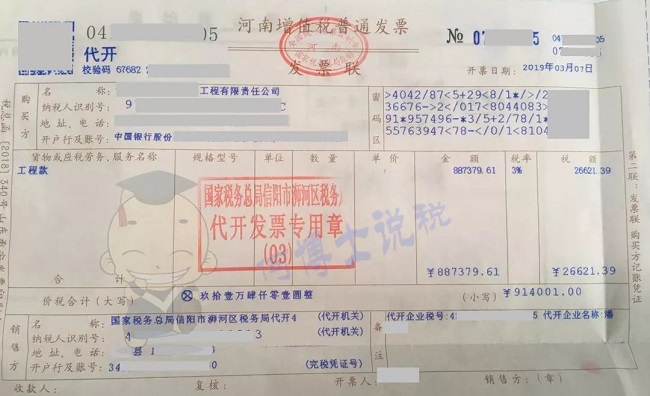 04 05 河南增值税普通发票 № 07 5 04 05
代开
校验码 67682 发票联 开票日期: 2019年03月07日
购买方
名称: 工程有限责任公司
纳税人识别号: 9 C
地址、电话:
开户行及账号: 中国银行股份
密码区
>4042/87<5+29<8/1*/>/2
36676->2</017<8044083>
91*957496-*3/5+2/78/1*
55763947<78-</0/1<8104
货物或应税劳务、服务名称 规格型号 单位 数量 单价 金额 税率 税额
工程款 887379.61 3% 26621.39
国家税务总局信阳市浉河区税务
代开发票专用章
(03)
博士说税
合计 ￥887379.61 ￥26621.39
价税合计(大写) ⊗玖拾壹万肆仟零壹圆整 (小写) ￥914001.00
销售方
名称: 国家税务总局信阳市浉河区税务局代开4 (代开机关)
纳税人识别号: 4 3 (代开机关)
地址、电话: 县1
开户行及账号: 34 (完税凭证号)
备注
代开企业税号: 4 5 代开企业名称: 潘
收款人: 复核: 开票人: 销售方:(章)
第二联:发票联 购买方记账凭证